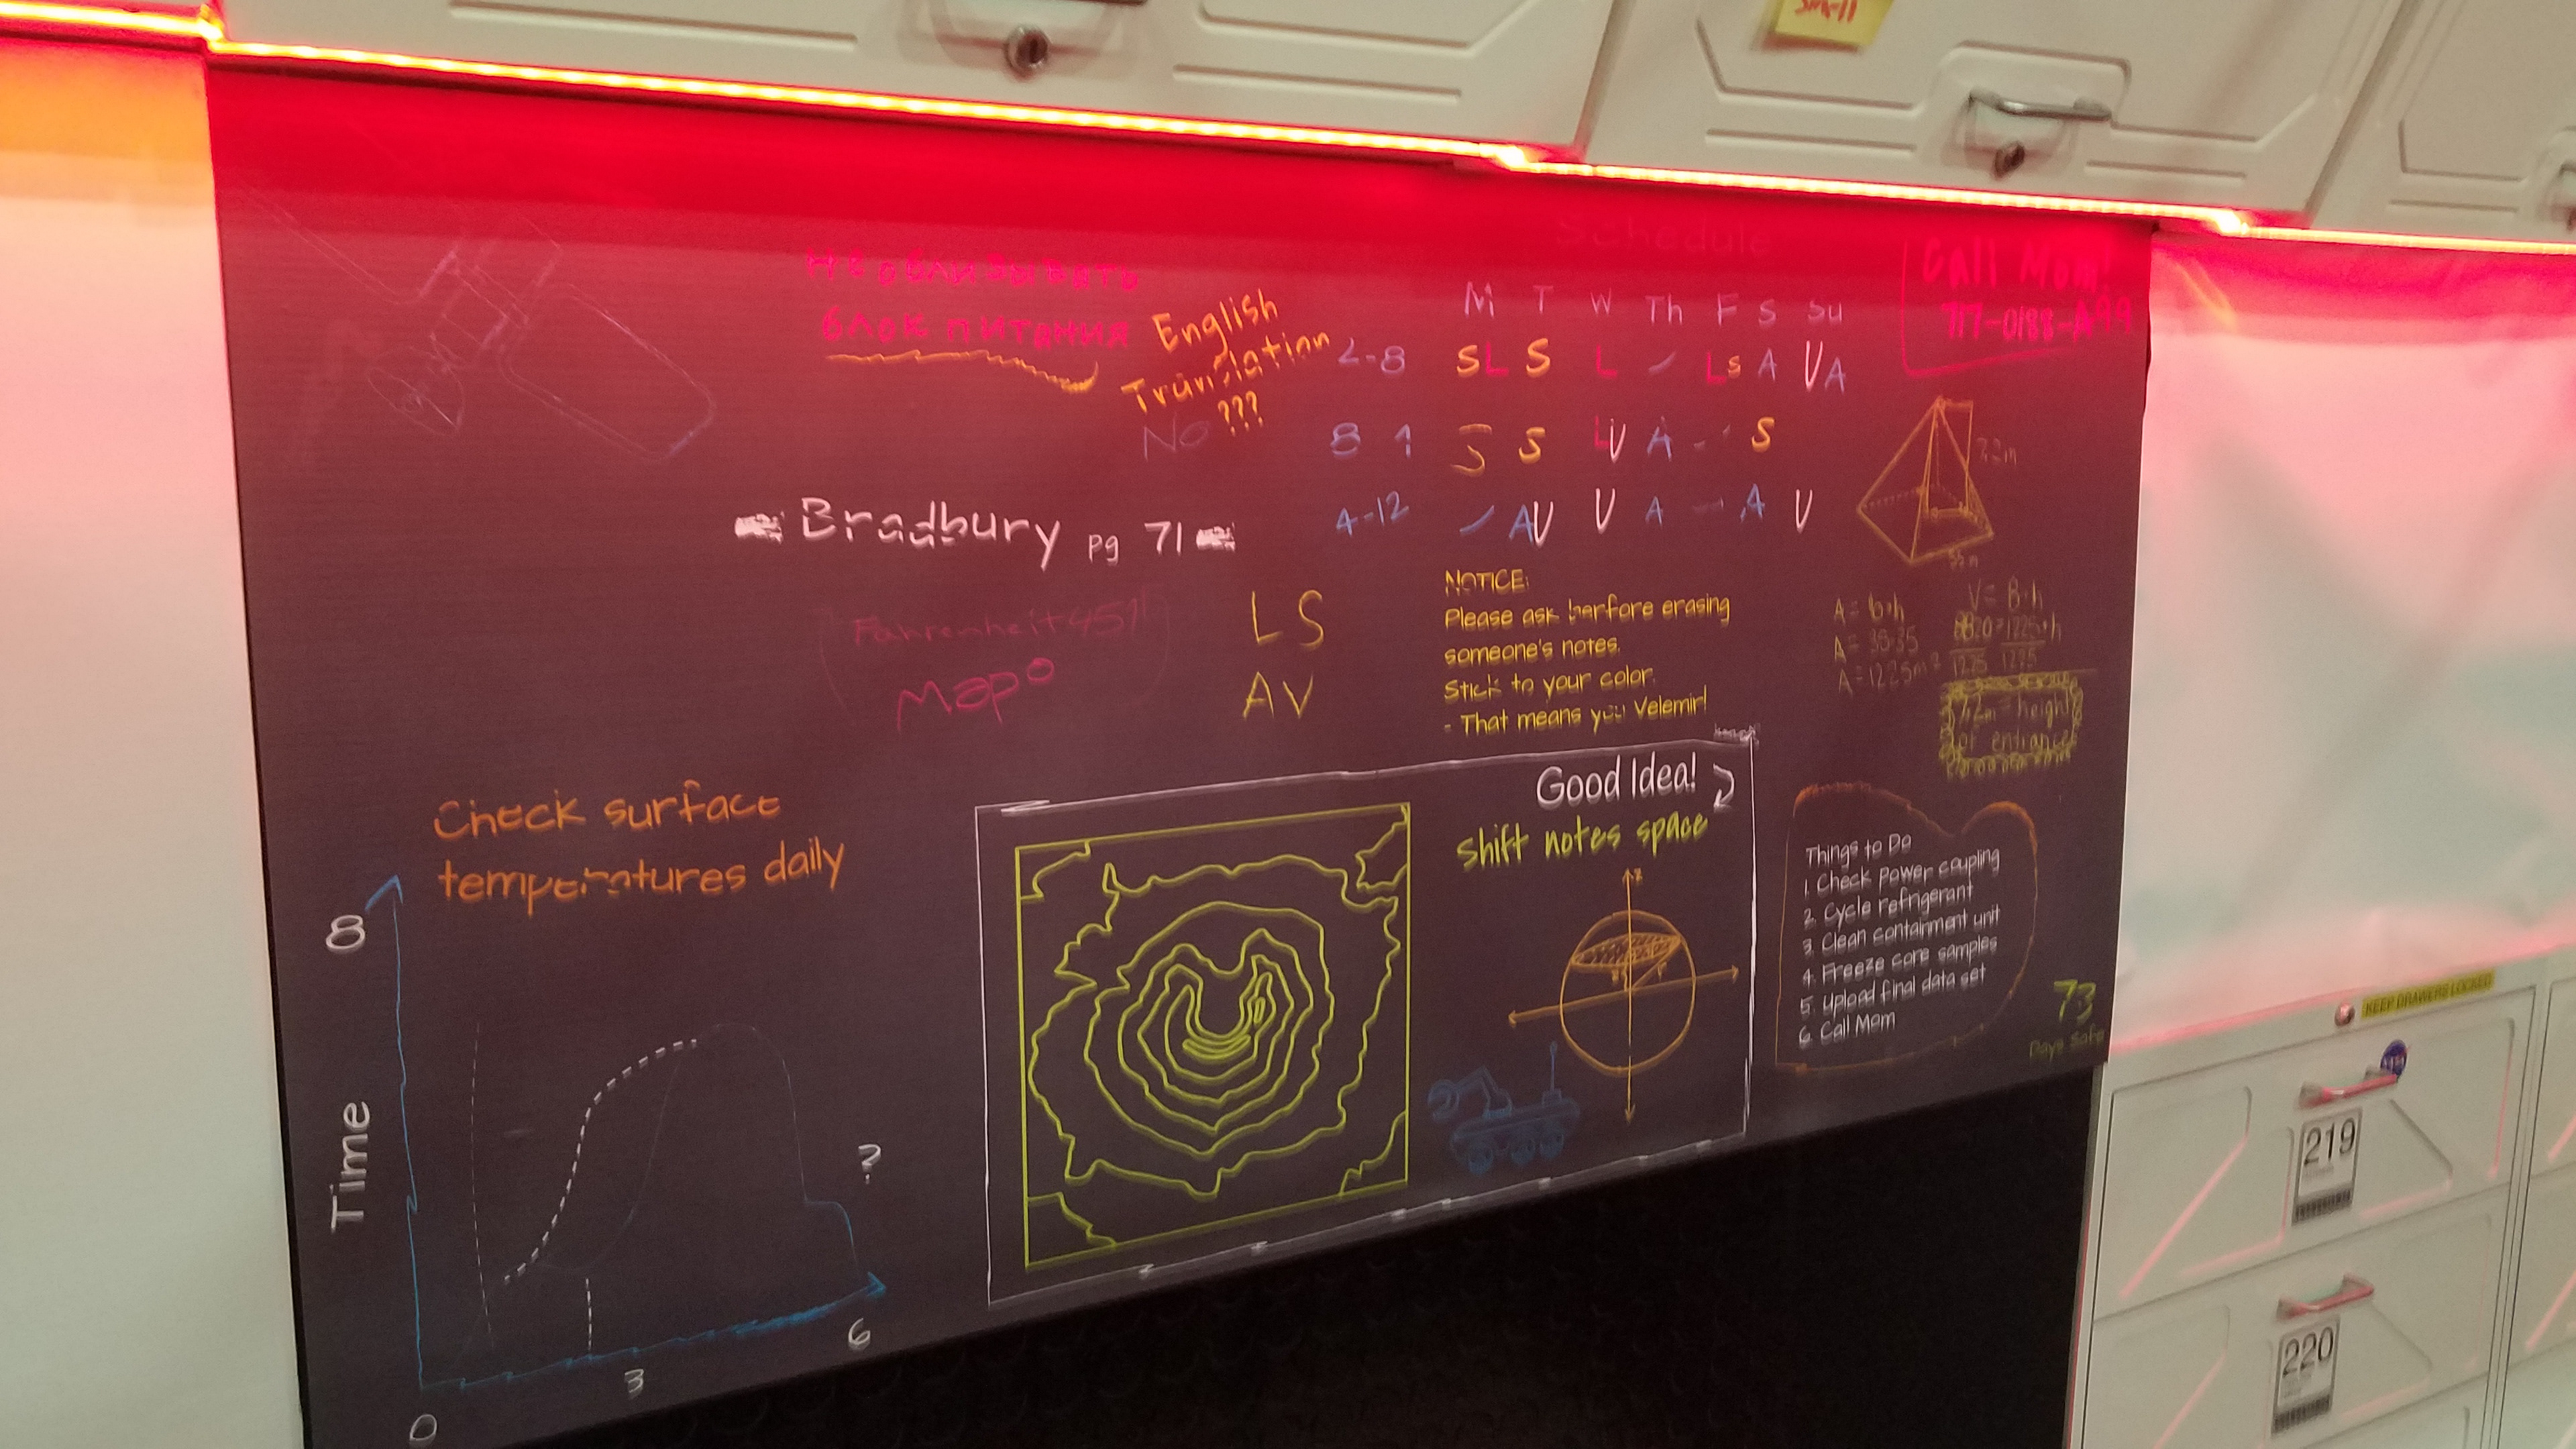 Schedule
Не облизывать
блок питания
English
Translation
???
No
M T W Th F S Su
SL S L - Ls A VA
8 S S LV A - S
4-12 - AV V A - A V
Call Mom!
Bradbury pg 71
Fahrenheit 451
LS
AV
NOTICE:
Please ask berfore erasing
someone's notes.
Stick to your color.
- That means you Velemir!
7.2m
A = b·h
A = 35·35
A = 1225m²
V = B·h
8820 = 1225·h
1225 1225
7.2m = height
of entrance
Check surface
temperatures daily
8
Time
?
0
3
6
Good Idea!
shift notes space
Things to Do
1. Check power coupling
2. Cycle refrigerant
3. Clean containment unit
4. Freeze core samples
5. Upload final data set
6. Call Mom
73
Days Safe
KEEP DRAWERS LOCKED
219
220